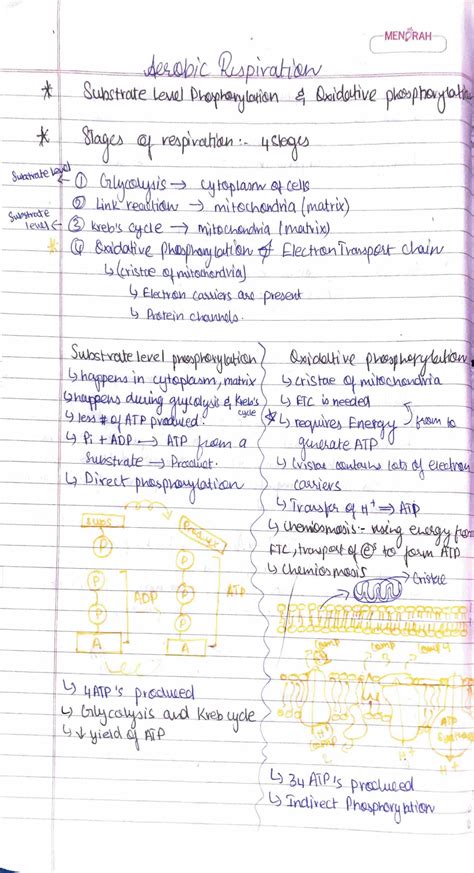 MENORAH
Aerobic Respiration
* Substrate Level Phosphorylation & Oxidative phosphorylation
* Stages of respiration:- 4 stages
Substrate level ← ① Glycolysis → cytoplasm of cells
② Link reaction → mitochondria (matrix)
Substrate level ← ③ Kreb's cycle → mitochondria (matrix)
* ④ Oxidative Phosphorylation of Electron Transport chain
↳ (cristae of mitochondria)
↳ Electron carriers are present
↳ Protein channels.
Substrate level phosphorylation
↳ happens in cytoplasm, matrix
↳ happens during glycolysis & Kreb's cycle
↳ less # of ATP produced.
↳ Pi + ADP → ATP from a
Substrate → Product.
↳ Direct phosphorylation
Subs
Product
P
P
P
P
P
ADP
ATP
A
A
↳ 4 ATP's produced
↳ Glycolysis and Kreb cycle
↳ ↓ yield of ATP
Oxidative phosphorylation
↳ cristae of mitochondria
↳ ETC is needed
* ↳ requires Energy from to
generate ATP
↳ Cristae contains lots of electron
carriers
↳ Transfer of H⁺ ⇒ ATP
↳ Chemiosmosis:- using energy from
ETC, transport of e⁻s to form ATP
↳ Chemiosmosis
→ Cristae
Comp
Comp
3
Comp
2
ATP
H⁺
H⁺
↳ 34 ATP's produced
↳ Indirect Phosphorylation